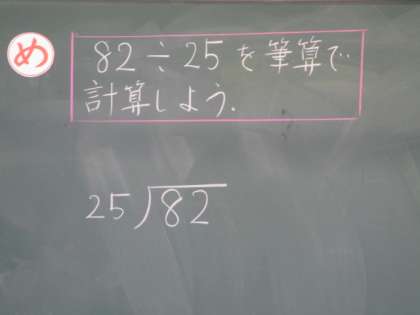 め
82÷25を筆算で
計算しよう.
25)82